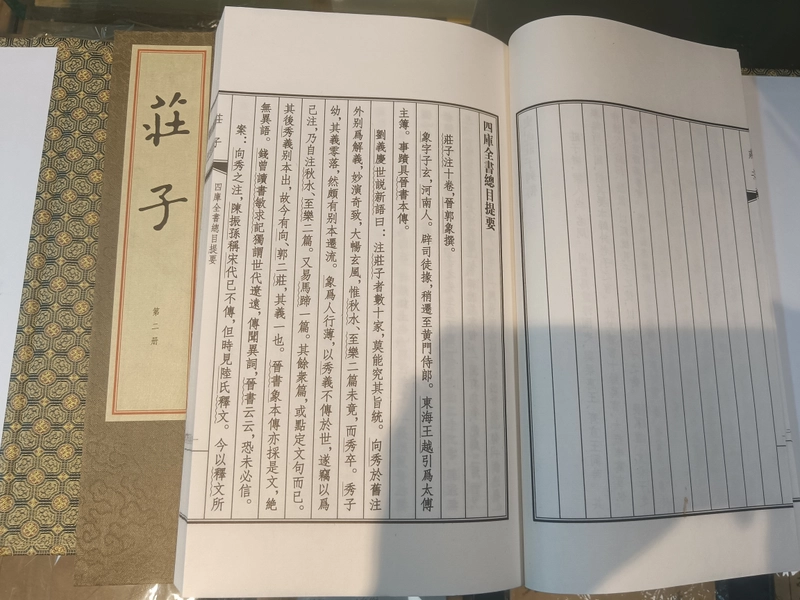 四庫全書總目提要
莊子注十卷,晉郭象撰。
象字子玄,河南人。辟司徒掾,稍遷至黄門侍郎。東海王越引爲太傅
主簿。事蹟具晉書本傳。
劉義慶世說新語曰:注莊子者數十家,莫能究其旨統。向秀於舊注
外別爲解義,妙演奇致,大暢玄風,惟秋水、至樂二篇未竟,而秀卒。秀子
幼,其義零落,然頗有別本遷流。象爲人行薄,以秀義不傳於世,遂竊以爲
己注,乃自注秋水、至樂二篇。又易馬蹄一篇。其餘衆篇,或點定文句而已。
其後秀義別本出,故今有向、郭二莊,其義一也。晉書象本傳亦採是文,絶
無異語。錢曾讀書敏求記獨謂世代遼遠,傳聞異詞,晉書云云,恐未必信。
案:向秀之注,陳振孫稱宋代已不傳,但時見陸氏釋文。今以釋文所
莊子
四庫全書總目提要
莊子
第二册